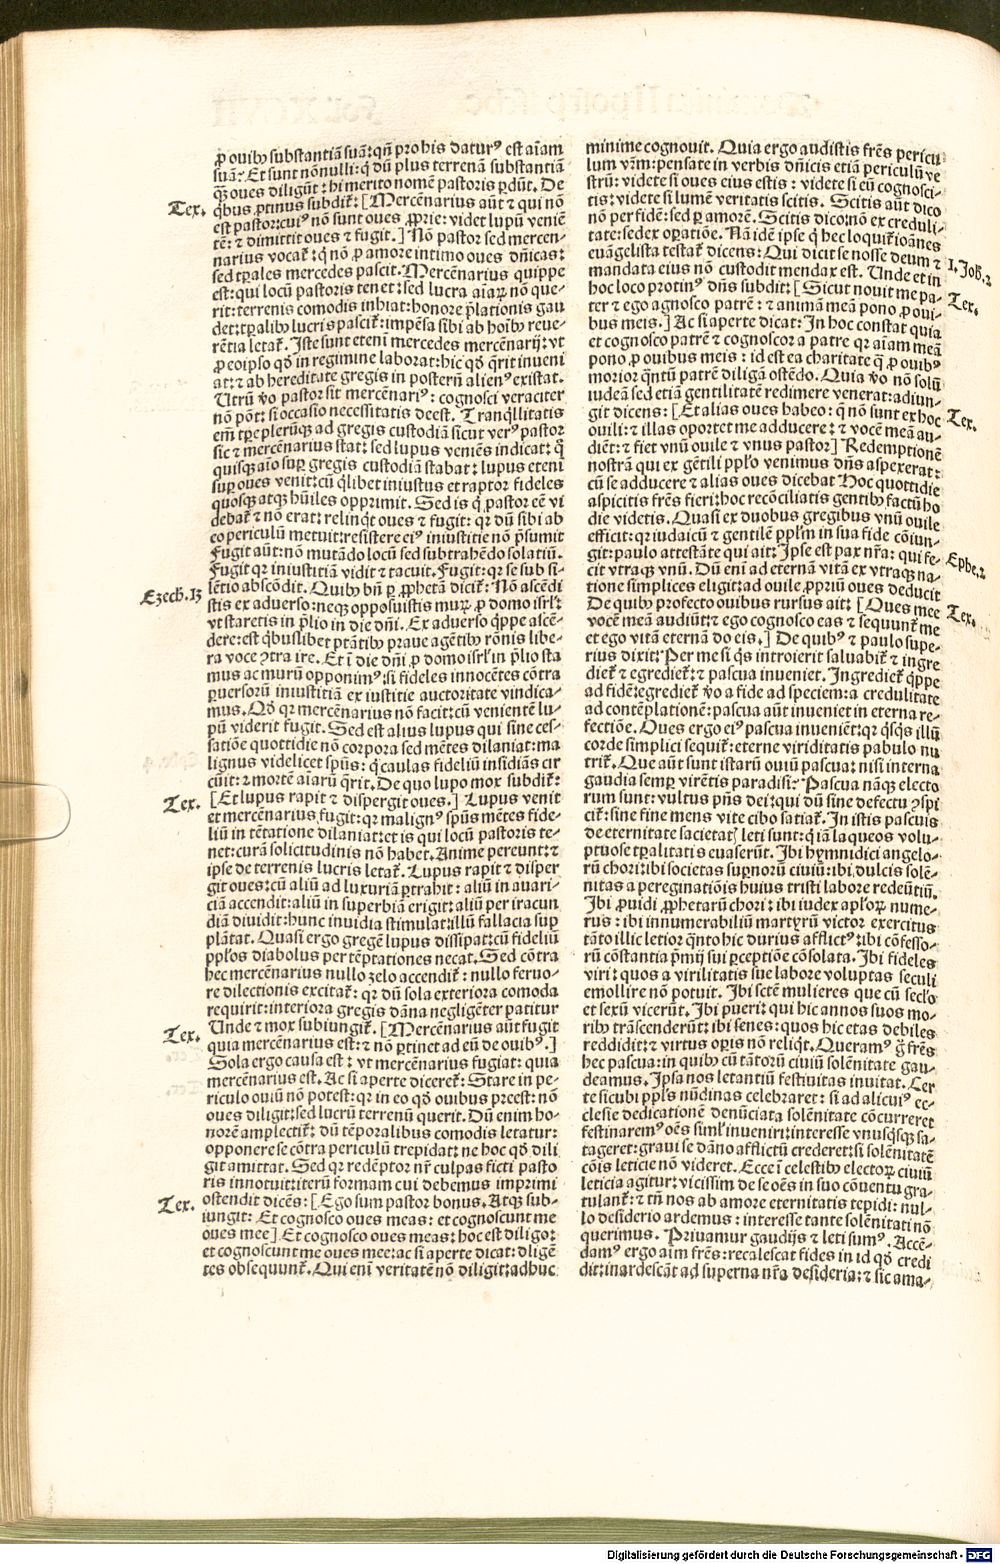 ꝓ ouibꝰ substantiã suã: qñ pro his daturꝰ est aĩam
suã? Et sunt nõnulli: q̃ dũ plus terrenã substantiã
q̃ȝ oues diligũt: hi merito nomẽ pastoris ꝑdũt. De
Tex.
qͥbus ꝓtinus subdit᷑: [Mercẽnarius aũt ⁊ qui nõ
est pastor: cuiꝰ nõ sunt oues ꝓprie: videt lupũ veniẽ
tẽ: ⁊ dimittit oues ⁊ fugit.] Nõ pastor sed mercen-
narius vocat᷑: q̃ nõ ꝓ amore intimo oues dñicas:
sed tꝑales mercedes pascit. Mercẽnarius quippe
est: qui locũ pastoris tenet: sed lucra aĩaꝝ nõ que-
rit: terrenis comodis inhiat: honore p̃lationis gau
det: tꝑalibꝰ lucris pascit᷑: impẽsa sibi ab hoĩbꝰ reue-
rẽtia letat᷑. Iste sunt etenĩ mercedes mercẽnarij: vt
ꝓ eo ipso qð in regimine laborat: hic qð q̃rit inueni
at: ⁊ ab hereditate gregis in posterũ alienꝰ existat.
Utrũ ꝟo pastor sit mercẽnariꝰ: cognosci veraciter
nõ põt: si occasio necessitatis deest. Tranqͥllitatis
em̃ tꝑe plerũqȝ ad gregis custodiã sicut verꝰ pastor
sic ⁊ mercẽnarius stat: sed lupus veniẽs indicat: q̃
quisqȝ aĩo suꝑ gregis custodiã stabat: lupus etenĩ
suꝑ oues venit: cũ qͥlibet iniustus et raptor fideles
quosqȝ atqȝ hũiles opprimit. Sed is q̃ pastor eẽ vi
debat᷑ ⁊ nõ erat: relinqͥt oues ⁊ fugit: qꝛ dũ sibi ab
eo periculũ metuit: resistere eiꝰ iniustitie nõ p̃sumit
Fugit aũt: nõ mutãdo locũ sed subtrahẽdo solatiũ.
Fugit qꝛ iniustitiã vidit ⁊ tacuit. Fugit: qꝛ se sub si-
Ezech. 13
lẽtio abscõdit. Quibꝰ bñ ꝑ ꝓphetã dicit᷑: Nõ ascẽdi
stis ex aduerso: neqȝ opposuistis murꝝ ꝓ domo isrl̃:
vt staretis in p̃lio in die dñi. Ex aduerso q̃ppe ascẽ-
dere: est qͥbuslibet ptãtibꝰ praue agẽtibꝰ rõnis libe-
ra voce ꝯtra ire. Et ĩ die dñi ꝓ domo isrl̃ in p̃lio sta
mus ac murũ opponimꝰ: si fideles innocẽtes cõtra
ꝑuersorũ iniustitiã ex iustitie auctoritate vindica-
mus. Qð qꝛ mercẽnarius nõ facit: cũ venientẽ lu-
pũ viderit fugit. Sed est alius lupus qui sine ces-
satiõe quottidie nõ corpora sed mẽtes dilaniat: ma
lignus videlicet spũs: q̃ caulas fideliũ insidiãs cir
cũit: ⁊ mortẽ aĩarũ q̃rit. De quo lupo mox subdit᷑:
Tex.
[Et lupus rapit ⁊ dispergit oues.] Lupus venit
et mercẽnarius fugit: qꝛ malignꝰ spũs mẽtes fide-
liũ in tẽtatione dilaniat: et is qui locũ pastoris te-
net: curã solicitudinis nõ habet. Anime pereunt: ⁊
ipse de terrenis lucris letat᷑. Lupus rapit ⁊ disper
git oues: cũ aliũ ad luxuriã ꝑtrahit: aliũ in auari-
ciã accendit: aliũ in superbiã erigit: aliũ per iracun
diã diuidit: hunc inuidia stimulat: illũ fallacia sup
plãtat. Quasi ergo gregẽ lupus dissipat: cũ fideliũ
pplo̾s diabolus per tẽptationes necat. Sed cõtra
hec mercẽnarius nullo zelo accendit᷑: nullo feruo-
re dilectionis excitat᷑: qꝛ dũ sola exteriora comoda
requirit: interiora gregis dãna negligẽter patitur
Tex.
Unde ⁊ mox subiungit᷑. [Mercẽnarius aũt fugit
quia mercẽnarius est: ⁊ nõ ꝑtinet ad eũ de ouibꝰ.]
Sola ergo causa est: vt mercẽnarius fugiat: quia
mercẽnarius est. Ac si aperte diceret᷑: Stare in pe-
riculo ouiũ nõ potest: qꝛ in eo qð ouibus preest: nõ
oues diligit: sed lucrũ terrenũ querit. Dũ enim ho-
norẽ amplectit᷑: dũ tẽporalibus comodis letatur:
opponere se cõtra periculũ trepidat: ne hoc qð dili
git amittat. Sed qꝛ redẽptor nr̃ culpas ficti pasto
ris innotuit: iterũ formam cui debemus imprimi
Tex.
ostendit dicẽs: [Ego sum pastor bonus. Atqȝ sub-
iungit: Et cognosco oues meas: et cognoscunt me
oues mee] Et cognosco oues meas: hoc est diligo:
et cognoscunt me oues mee: ac si aperte dicat: diligẽ
tes obsequunt᷑. Qui enĩ veritatẽ nõ diligit: adhuc
minime cognouit. Quia ergo audistis frẽs pericu
lum vr̃m: pensate in verbis dñicis etiã periculũ ve
strũ: videte si oues eius estis: videte si eũ cognosci-
tis: videte si lumẽ veritatis scitis. Scitis aũt dico
nõ per fidẽ: sed ꝑ amorẽ. Scitis dico: nõ ex creduli-
tate: sed ex oꝑatiõe. Nã idẽ ipse q̃ hec loquit᷑ ioãnes
1. Joh̃. 2
euãgelista testat᷑ dicens: Qui dicit se nosse deum ⁊
mandata eius nõ custodit mendax est. Unde et in
Tex.
hoc loco protinꝰ dñs subdit: [Sicut nouit me pa-
ter ⁊ ego agnosco patrẽ: ⁊ animã meã pono ꝓ oui-
bus meis.] Ac si aperte dicat: In hoc constat quia
et cognosco patrẽ ⁊ cognoscor a patre qꝛ aĩam meã
pono ꝓ ouibus meis: id est ea charitate q̃ ꝓ ouibꝰ
morior q̃ntũ patrẽ diligã ostẽdo. Quia ꝟo nõ solũ
iudeã sed etiã gentilitatẽ redimere venerat: adiun-
Tex.
git dicens: [Et alias oues habeo: q̃ nõ sunt ex hoc
ouili: ⁊ illas oportet me adducere: ⁊ vocẽ meã au-
diẽt: ⁊ fiet vnũ ouile ⁊ vnus pastor] Redemptionẽ
nostrã qui ex gẽtili pplo̾ venimus dñs aspexerat:
cũ se adducere ⁊ alias oues dicebat Hoc quottidie
aspicitis frẽs fieri: hoc recõciliatis gentibꝰ factũ ho
die videtis. Quasi ex duobus gregibus vnũ ouile
efficit: qꝛ iudaicũ ⁊ gentilẽ pplm̃ in sua fide cõiun-
Ephe. 2
git: paulo attestãte qui ait: Ipse est pax nr̃a: qui fe-
cit vtraqȝ vnũ. Dũ enĩ ad eternã vitã ex vtraqȝ na-
tione simplices eligit: ad ouile ꝓpriũ oues deducit
Tex.
De quibꝰ profecto ouibus rursus ait: [Oues mee
vocẽ meã audiũt: ⁊ ego cognosco eas ⁊ sequunt᷑ me
et ego vitã eternã do eis.] De quibꝰ ⁊ paulo supe-
rius dixit: Per me si q̃s introierit saluabit᷑ ⁊ ingre
diet᷑ ⁊ egrediet᷑: ⁊ pascua inueniet. Ingrediet᷑ q̃ppe
ad fidẽ: egrediet᷑ ꝟo a fide ad speciem: a credulitate
ad contẽplationẽ: pascua aũt inueniet in eterna re-
fectiõe. Oues ergo eiꝰ pascua inueniẽt: qꝛ q̃sq̃s illũ
corde simplici sequit᷑: eterne viriditatis pabulo nu
trit᷑. Que aũt sunt istarũ ouiũ pascua: nisi interna
gaudia semꝑ virẽtis paradisi? Pascua nãqȝ electo
rum sunt: vultus pñs dei: qui dũ sine defectu ꝯspi
cit᷑: sine fine mens vite cibo satiat᷑. In istis pascuis
de eternitate societatꝭ leti sunt: q̃ iã laqueos volu-
ptuose tꝑalitatis euaserũt. Ibi hymnidici angelo-
rũ chori: ibi societas supernorũ ciuiũ: ibi dulcis solẽ-
nitas a peregrinatiõis huius tristi labore redeũtiũ.
Ibi ꝓuidi ꝓphetarũ chori: ibi iudex aplo̾ꝝ nume-
rus: ibi innumerabiliũ martyrũ victor exercitus
tãto illic letior q̃nto hic durius afflictꝰ: ibi cõfesso-
rũ cõstantia p̃mij sui ꝑceptiõe cõsolata. Ibi fideles
viri: quos a virilitatis sue labore voluptas seculi
emollire nõ potuit. Ibi sctẽ mulieres que cũ seclo̾
et sexũ vicerũt. Ibi pueri: qui hic annos suos mo-
ribꝰ trãscenderũt: ibi senes: quos hic etas debiles
reddidit: ⁊ virtus oꝑis nõ reliqͥt. Queramꝰ g̃ frẽs
hec pascua: in quibꝰ cũ tãtorũ ciuiũ solẽnitate gau-
deamus. Ipsa nos letantiũ festiuitas inuitat. Cer
te sicubi ppls̃ nũdinas celebraret: si ad alicuiꝰ ec-
clesie dedicationẽ denũciata solẽnitate cõcurreret
festinaremꝰ oẽs siml̃ inueniri: interesse vnusqͥsqȝ sa-
tageret: graui se dãno afflictũ crederet: si solẽnitatẽ
cõis leticie nõ videret. Ecce ĩ celestibꝰ electoꝝ ciuiũ
leticia agitur: vicissim de se oẽs in suo cõuentu gra-
tulant᷑: ⁊ tñ nos ab amore eternitatis tepidi: nul-
lo desiderio ardemus: interesse tante solẽnitati nõ
querimus. Priuamur gaudijs ⁊ leti sumꝰ. Accẽ-
damꝰ ergo aĩm frẽs: recalescat fides in id qð credi
dit: inardescãt ad superna nr̃a desideria: ⁊ sic ama-
Digitalisierung gefördert durch die Deutsche Forschungsgemeinschaft - DFG